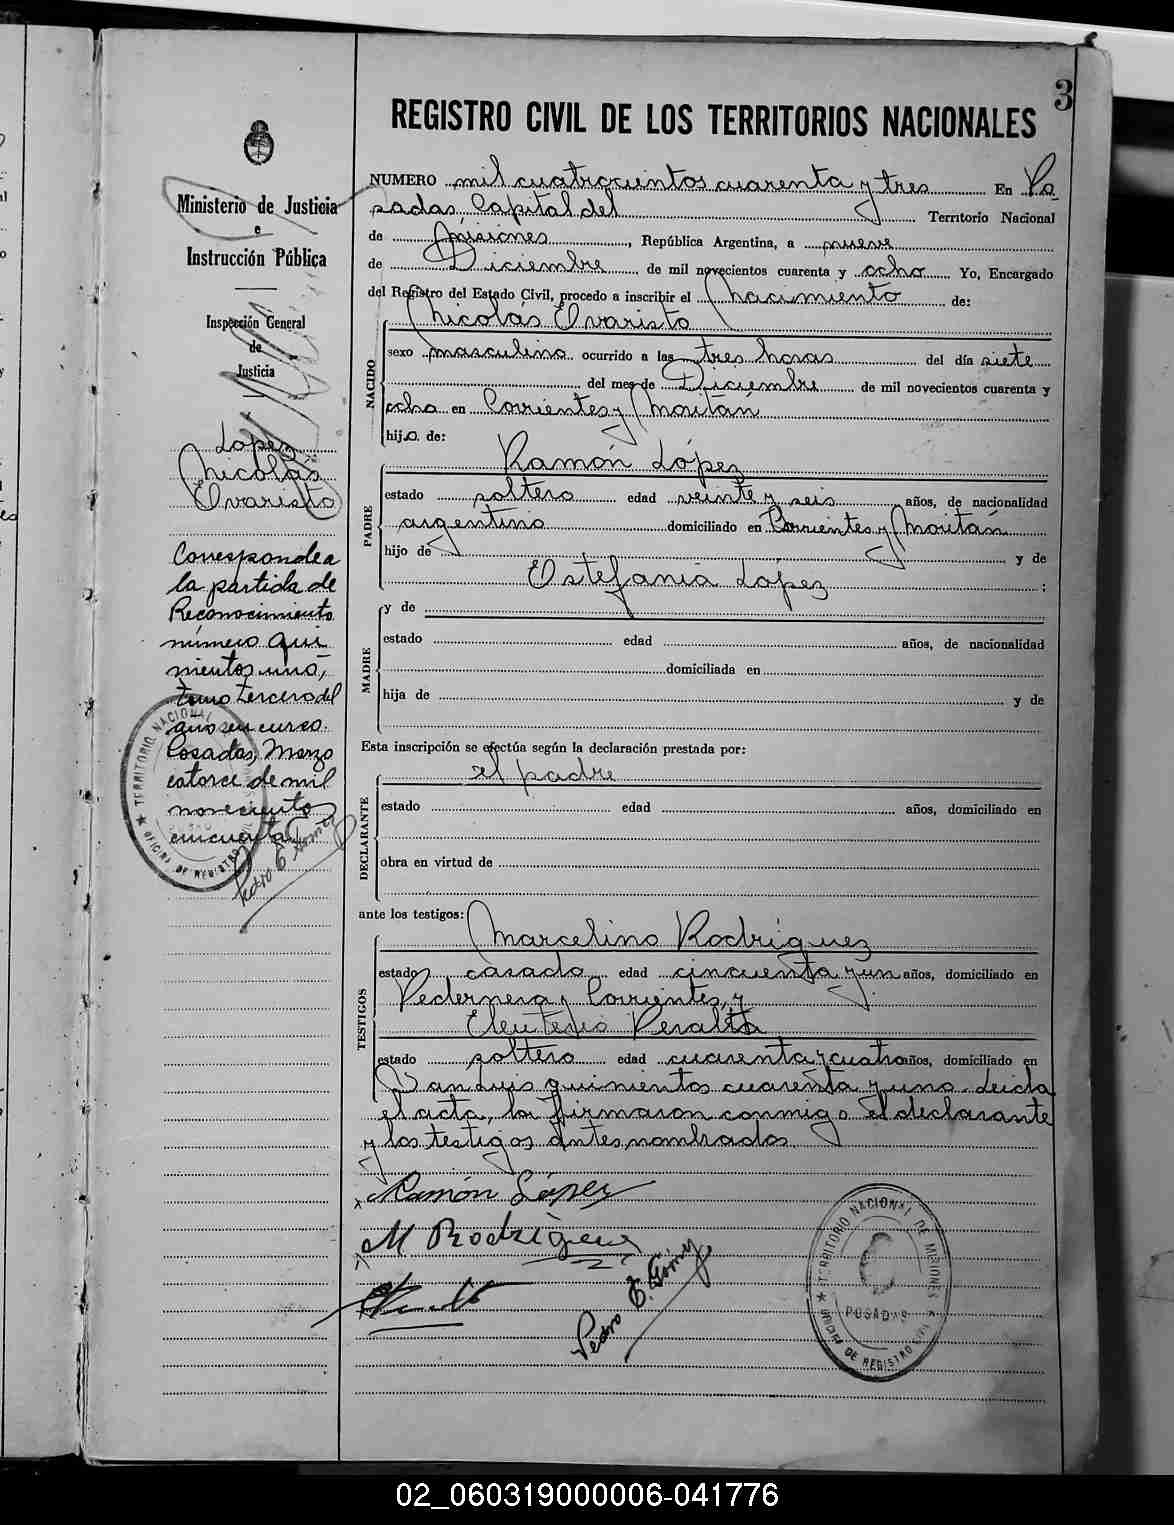 3
REGISTRO CIVIL DE LOS TERRITORIOS NACIONALES
Ministerio de Justicia
e
Instrucción Pública
Inspección General
de
Justicia
López
Nicolás
Evaristo
Corresponde a
la partida de
Reconocimiento
número qui
nientos uno,
tomo tercero del
año en curso.
Posadas, Marzo
catorce de mil
novecientos
cincuenta
Pedro E. Gómez
NUMERO mil cuatrocientos cuarenta y tres En Po
sadas, Capital del Territorio Nacional
de Misiones, República Argentina, a nueve
de Diciembre de mil novecientos cuarenta y ocho Yo, Encargado
del Registro del Estado Civil, procedo a inscribir el Nacimiento de:
NACIDO
Nicolás Evaristo
sexo masculino ocurrido a las tres horas del día siete
del mes de Diciembre de mil novecientos cuarenta y
ocho en Corrientes y Moritán
hijo de:
PADRE
Ramón López
estado soltero edad veinte y seis años, de nacionalidad
argentino domiciliado en Corrientes y Moritán
hijo de y de
Estefania López ;
MADRE
y de
estado edad años, de nacionalidad
domiciliada en
hija de y de
Esta inscripción se efectúa según la declaración prestada por:
DECLARANTE
el padre
estado edad años, domiciliado en
obra en virtud de
ante los testigos:
TESTIGOS
Marcelino Rodríguez
estado casado edad cincuenta y un años, domiciliado en
Pedernera y Corrientes, y
Eleuterio Peralta
estado soltero edad cuarenta y cuatro años, domiciliado en
San Luis quinientos cuarenta y uno. Leída
el acta, la firmaron conmigo el declarante
y los testigos antes nombrados.
Ramón López
M Rodríguez
Pedro E. Gómez
TERRITORIO NACIONAL DE MISIONES
POSADAS
OFICINA DE REGISTRO CIVIL
TERRITORIO NACIONAL
OFICINA DE REGISTRO
02_060319000006-041776